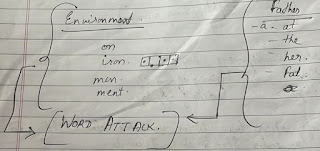 Environment
on
iron.
men
ment.
[WORD ATTACK.]
Father
-a- at
the
her.
Fat.